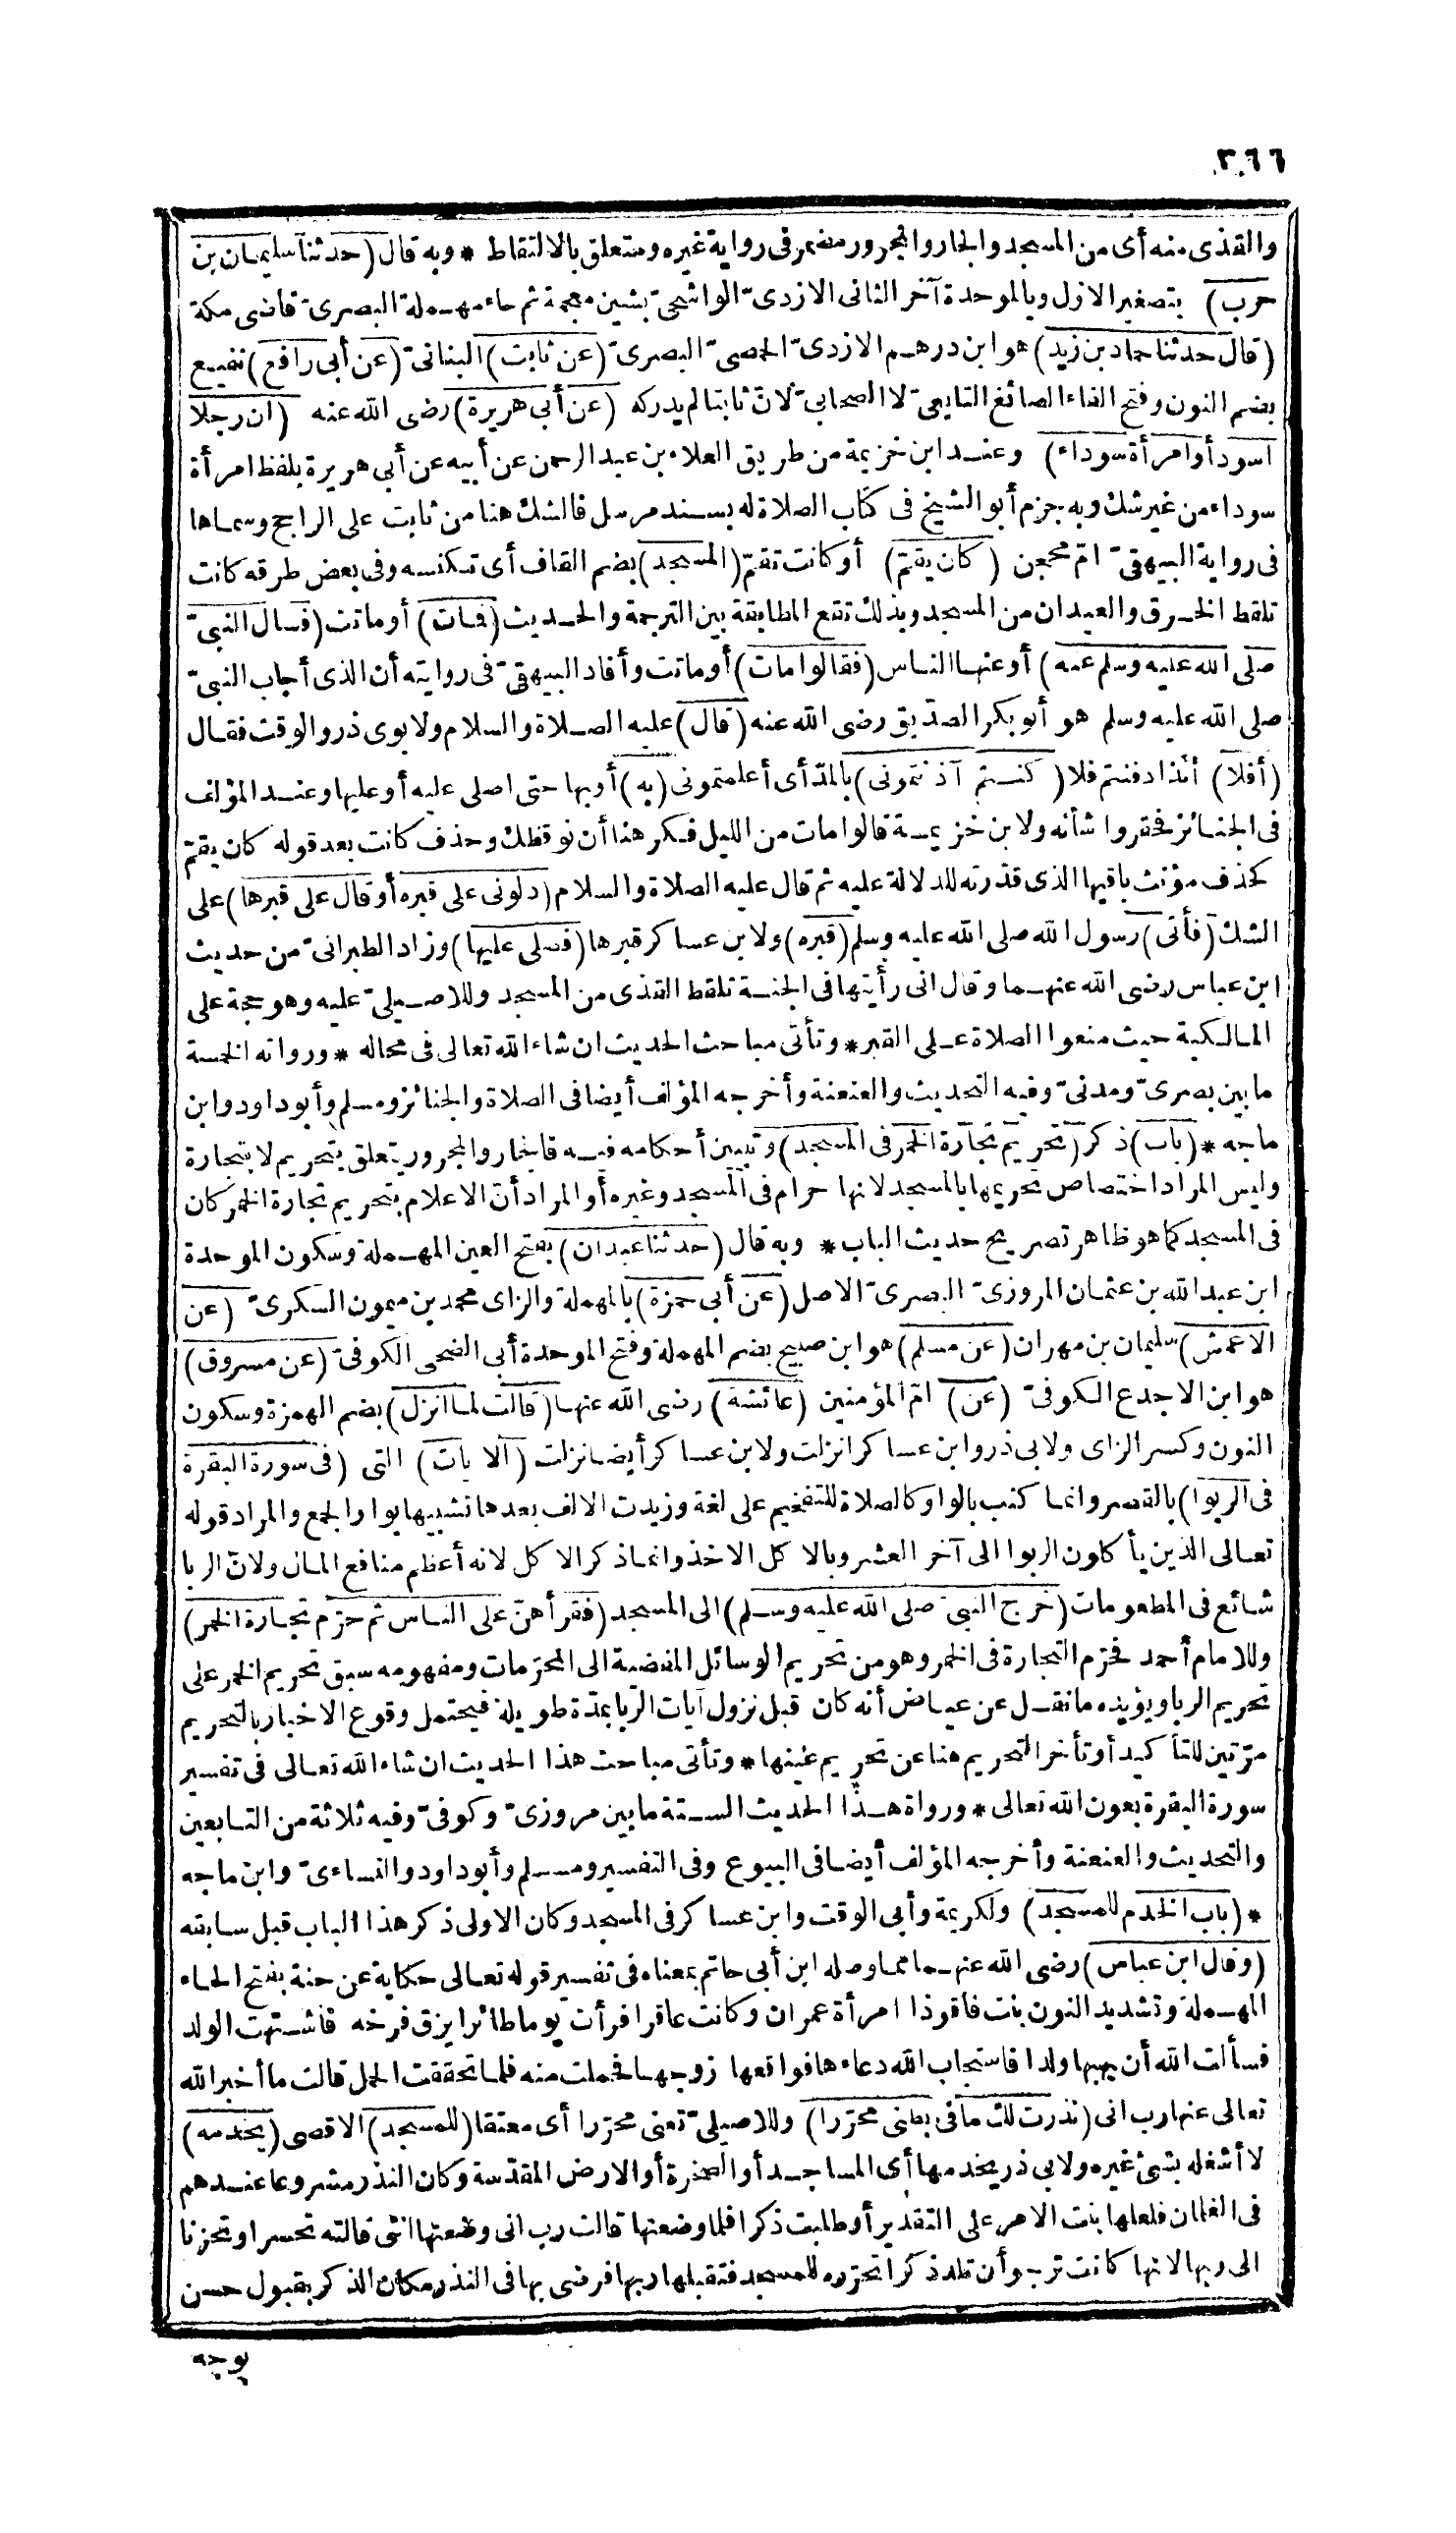 ٣٦٦
والقذى منه أى من المسجد والجار والمجرور مضمر فى رواية غيره ومتعلق بالالتقاط * وبه قال (حدثنا سليمان بن
حرب) بتصغير الاول وبالموحدة آخر الثانى الازدىّ الواشحىّ بشين معجمة ثم حاء مهملة البصرىّ قاضى مكة
(قال حدثنا حماد بن زيد) هو ابن درهم الازدىّ الجهضمىّ البصرىّ (عن ثابت) البنانىّ (عن أبى رافع) نفيع
بضم النون وفتح الفاء الصائغ التابعىّ لا الصحابىّ لانّ ثابتا لم يدركه (عن أبى هريرة) رضى الله عنه (ان رجلا
اسود أوامرأة سوداء) وعند ابن خزيمة من طريق العلاء بن عبد الرحمن عن أبيه عن أبى هريرة بلفظ امرأة
سوداء من غير شك وبه جزم أبو الشيخ فى كتاب الصلاة له بسند مرسل فالشك هنا من ثابت على الراجح وسماها
فى رواية البيهقىّ امّ محجن (كان يقمّ) أو كانت تقمّ (المسجد) بضم القاف أى تكنسه وفى بعض طرقه كانت
تلقط الخرق والعيدان من المسجد وبذلك تقع المطابقة بين الترجمة والحديث (فمات) أو ماتت (فسأل النبىّ
صلى الله عليه وسلم عنه) أو عنها الناس (فقالوا مات) أو ماتت وأفاد البيهقىّ فى روايته أن الذى أجاب النبىّ
صلى الله عليه وسلم هو أبو بكر الصدّيق رضى الله عنه (قال) عليه الصلاة والسلام ولابوى ذر والوقت فقال
(أفلا) أئذا دفنتم فلا (كنتم آذنتمونى) بالمدّ أى أعلمتمونى (به) أو بها حتى اصلى عليه أو عليها وعند المؤلف
فى الجنائز فحقروا شأنه ولابن خزيمة قالوا مات من الليل فكرهنا أن نوقظك وحذف كانت بعد قوله كان يقمّ
كحذف مؤنث باقيها الذى قدّرته للدلالة عليه ثم قال عليه الصلاة والسلام (دلونى على قبره أو قال على قبرها) على
الشك (فأتى) رسول الله صلى الله عليه وسلم (قبره) ولابن عساكر قبرها (فصلى عليها) وزاد الطبرانىّ من حديث
ابن عباس رضى الله عنهما وقال انى رأيتها فى الجنة تلقط القذى من المسجد وللاصيلىّ عليه وهو حجة على
المالكية حيث منعوا الصلاة على القبر * وتأتى مباحث الحديث ان شاء الله تعالى فى محاله * ورواته الخمسة
ما بين بصرىّ ومدنىّ وفيه التحديث والعنعنة وأخرجه المؤلف أيضا فى الصلاة والجنائز ومسلم وأبو داود وابن
ماجه * (باب) ذكر (تحريم تجارة الخمر فى المسجد) وتبيين أحكامه فيه فالجار والمجرور يتعلق بتحريم لا بتجارة
وليس المراد اختصاص تحريمها بالمسجد لانها حرام فى المسجد وغيره أو المراد أن الاعلام بتحريم تجارة الخمر كان
فى المسجد كما هو ظاهر تصريح حديث الباب * وبه قال (حدثنا عبدان) بفتح العين المهملة وسكون الموحدة
ابن عبد الله بن عثمان المروزىّ البصرىّ الاصل (عن أبى حمزة) بالمهملة والزاى محمد بن ميمون السكرىّ (عن
الاعمش) سليمان بن مهران (عن مسلم) هو ابن صبيح بضم المهملة وفتح الموحدة أبى الضحى الكوفىّ (عن مسروق)
هو ابن الاجدع الكوفىّ (عن) امّ المؤمنين (عائشة) رضى الله عنها (قالت لما انزل) بضم الهمزة وسكون
النون وكسر الزاى ولابى ذر وابن عساكر انزلت ولابن عساكر أيضا نزلت (الآيات) التى (فى سورة البقرة
فى الربوا) بالقصر وانما كتب بالواو كالصلاة للتفخيم على لغة وزيدت الالف بعدها تشبيها بواو الجمع والمراد قوله
تعالى الذين يأكلون الربوا الى آخر العشر وبالاكل الاخذ وانما ذكر الاكل لانه أعظم منافع المال ولانّ الربا
شائع فى المطعومات (خرج النبىّ صلى الله عليه وسلم) الى المسجد (فقرأهنّ على الناس ثم حرّم تجارة الخمر)
وللامام أحمد فحرّم التجارة فى الخمر وهو من تحريم الوسائل المفضية الى المحرّمات ومفهومه سبق تحريم الخمر على
تحريم الربا ويؤيده ما نقل عن عياض أنه كان قبل نزول آيات الربا بمدّة طويلة فيحتمل وقوع الاخبار بالتحريم
مرّتين للتأكيد أو تأخر التحريم هنا عن تحريم عينها * وتأتى مباحث هذا الحديث ان شاء الله تعالى فى تفسير
سورة البقرة بعون الله تعالى * ورواة هذا الحديث الستة ما بين مروزىّ وكوفىّ وفيه ثلاثة من التابعين
والتحديث والعنعنة وأخرجه المؤلف أيضا فى البيوع وفى التفسير ومسلم وأبو داود والنساءىّ وابن ماجه
* (باب الخدم للمسجد) ولكريمة وأبى الوقت وابن عساكر فى المسجد وكان الاولى ذكر هذا الباب قبل سابقه
(وقال ابن عباس) رضى الله عنهما مما وصله ابن أبى حاتم بمعناه فى تفسير قوله تعالى حكاية عن حنة بفتح الحاء
المهملة وتشديد النون بنت فاقوذا امرأة عمران وكانت عاقرا فرأت يوما طائرا يزق فرخه فاشتهت الولد
فسألت الله أن يهبها ولدا فاستجاب الله دعاءها فواقعها زوجها فحملت منه فلما تحققت الحمل قالت ما أخبر الله
تعالى عنها رب انى (نذرت لك ما فى بطنى محرّرا) وللاصيلىّ تعنى محرّرا أى معتقا (للمسجد) الاقصى (يخدمه)
لا أشغله بشئ غيره ولابى ذر يخدمها أى المساجد أو الصخرة أو الارض المقدّسة وكان النذر مشروعا عندهم
فى الغلمان فلعلها بنت الامر على التقدير أو طلبت ذكرا فلما وضعتها قالت رب انى وضعتها انثى قالته تحسرا وتحزنا
الى ربها لانها كانت ترجو أن تلد ذكرا تحرّره للمسجد فتقبلها ربها فرضى بها فى النذر مكان الذكر بقبول حسن
بوجه